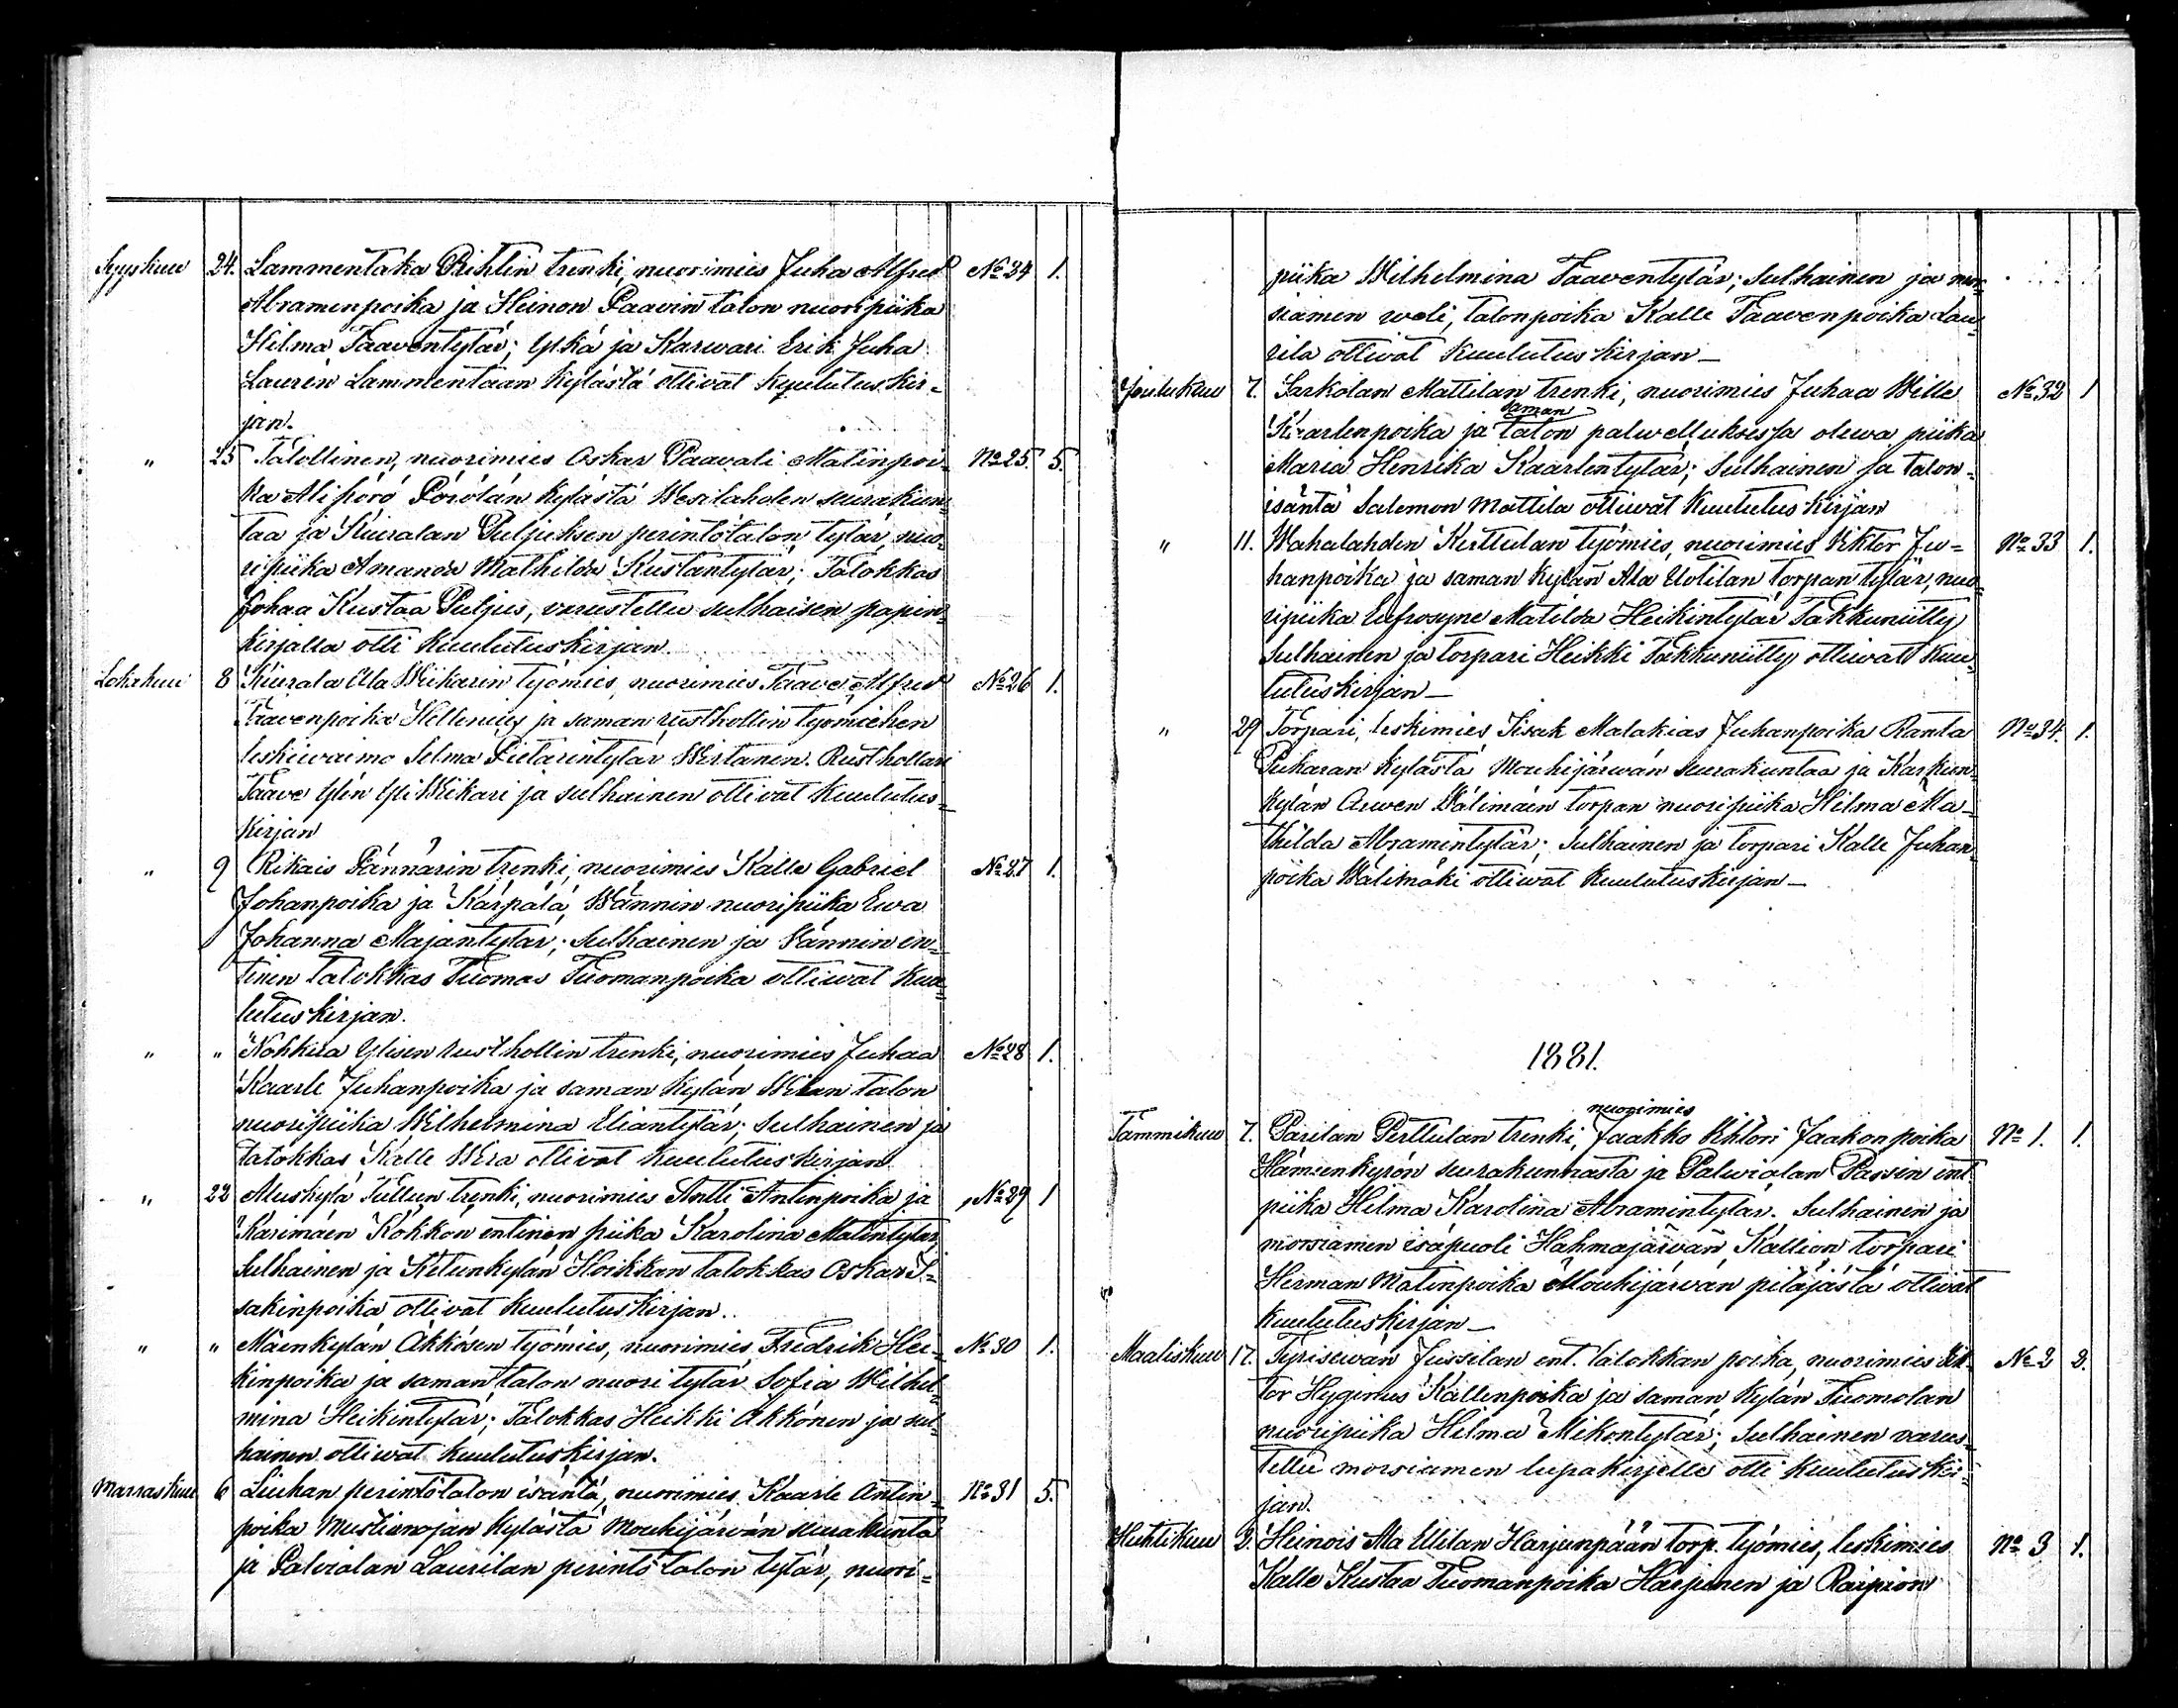 Syyskuu 24. Lammentaka Rihlin trenki, nuorimies Juha Alfred No 24 1.
Abramenpoika ja Heinon Paavin talon nuoripiika
Hilma Taaventytär; Ylkä ja Karwari Erik Juha
Laurén Lammentaan kylästä ottivat kuulutuskir-
jan.
" 25 Talollinen, nuorimies Oskar Paavali Matinpoi- No 25. 5.
ka Alipörö Pörölän kylästä Wesilahden seurakun-
taa ja Kiuralan Puljuksen perintötalon tytär nuo-
ripiika Amanda Mathilda Kustantytär; Talokkas
Johaa Kustaa Puljus, varustettu sulhaisen papin-
kirjalla otti kuulutuskirjan.
Lokakuu 8 Kiurala Ala Wiikarin työmies, nuorimies Taave Alfred No 26 1.
Taavenpoika Hellenius ja saman rusthollin työmiehen
leskiwaimo Selma Pietarintytär Wirtanen. Rusthollari
Taave Ylén Yli Wiikari ja sulhainen ottivat kuulutus-
kirjan
" 9 Rikais Pännärin trenki, nuorimies Kalle Gabriel No 27 1.
Johanpoika ja Kärpälä Wännin nuoripiika Ewa
Johanna Majantytär; Sulhainen ja Wännin en-
tinen talokkas Tuomas Tuomanpoika ottiwat kuu-
lutuskirjan.
" " Nohkua Ylisen rusthollin trenki, nuorimies Juhaa No 28 1.
Kaarle Juhanpoika ja saman kylän talon
nuoripiika Wilhelmina Eliantytär; Sulhainen ja
talokkas Kalle ottivat kuulutuskirjan.
" 22 Aluskylä Tullun trenki, nuorimies Antti Antinpoika ja No 29 1
Karimäen Kökkön entinen piika Karolina Matintytär,
Sulhainen ja Ketunkylän Hoikkan talokkas Oskar I-
sakinpoika ottivat kuulutuskirjan.
" " Mäenkylän Äkkösen työmies, nuorimies Fredrik Hei- No 30 1.
kinpoika ja saman talon nuori tytär Sofia Wilhel-
mina Heikintytär; Talokkas Heikki Äkkönen ja sul-
hainen ottiwat kuulutuskirjan.
Marraskuu 6 Liuhan perintötalon isäntä, nuorimies Kaarle Antin- No 31 5.
poika Mustianojan kylästä Mouhijärwän seurakunta
ja Palvialan Laurilan perintö talon tytär, nuori-
piika Wilhelmina Taaventytär; Sulhainen ja mor-
siamen weli, talonpoika Kalle Taavenpoika Lau-
rila ottivat kuulutuskirjan—
Joulukuu 7. Sarkolan Mattilan trenki, nuorimies Juhaa Wille No 32 1
Kaarlenpoika ja saman talon palwelluksessa olewa piika
Maria Henrika Kaarlentytär; Sulhainen ja talon-
isäntä Salomon Mattila ottiwat kuulutuskirjan
" 11. Wahalahden Kerttulan työmies, nuorimies Viktor Ju- No 33 1.
hanpoika ja saman kylän Ala Uotilan torpan tytär, nuo-
ripiika Eufrosyne Matilda Heikintytär Takkuniitty
Sulhainen ja torpari Heikki Takkuniitty ottiwat kuu-
lutuskirjan—
" 29 Torpari, leskimies Iisak Malakias Juhanpoika Ranta No 34. 1.
Pukaran kylästä Mouhijärwän seurakuntaa ja Karkun-
kylän Arwen Wälimäen torpan nuoripiika Hilma Ma-
thilda Abramintytär; Sulhainen ja torpari Kalle Juhan-
poika Wälimäki ottiwat kuulutuskirjan—
1881.
Tammikuu 7. Parilan Perttulan trenki, nuorimies Jaakko Vihtori Jaakonpoika No 1. 1.
Hämeenkyrön seurakunnasta ja Palwialan Passin ent.
piika Hilma Karolina Abramintytär. Sulhainen ja
morsiamen isäpuoli Hahmajärwän Kallion torpari
Herman Matinpoika Mouhijärwän pitäjästä ottiwat
kuulutuskirjan—
Maaliskuu 17. Tyrisewän Jussilan ent. talokkan poika, nuorimies Vik- No 2 3.
tor Hyginus Kallenpoika ja saman kylän Tuomolan
nuoripiika Hilma Mikontytär; Sulhainen varus-
tettu morsiamen lupakirjalla otti kuulutuskir-
jan.
Huhtikuu 3. Heinois Ala Ellilan Harjunpään torp. työmies, leskimies No 3 1.
Kalle Kustaa Tuomanpoika Harjunen ja Raipion